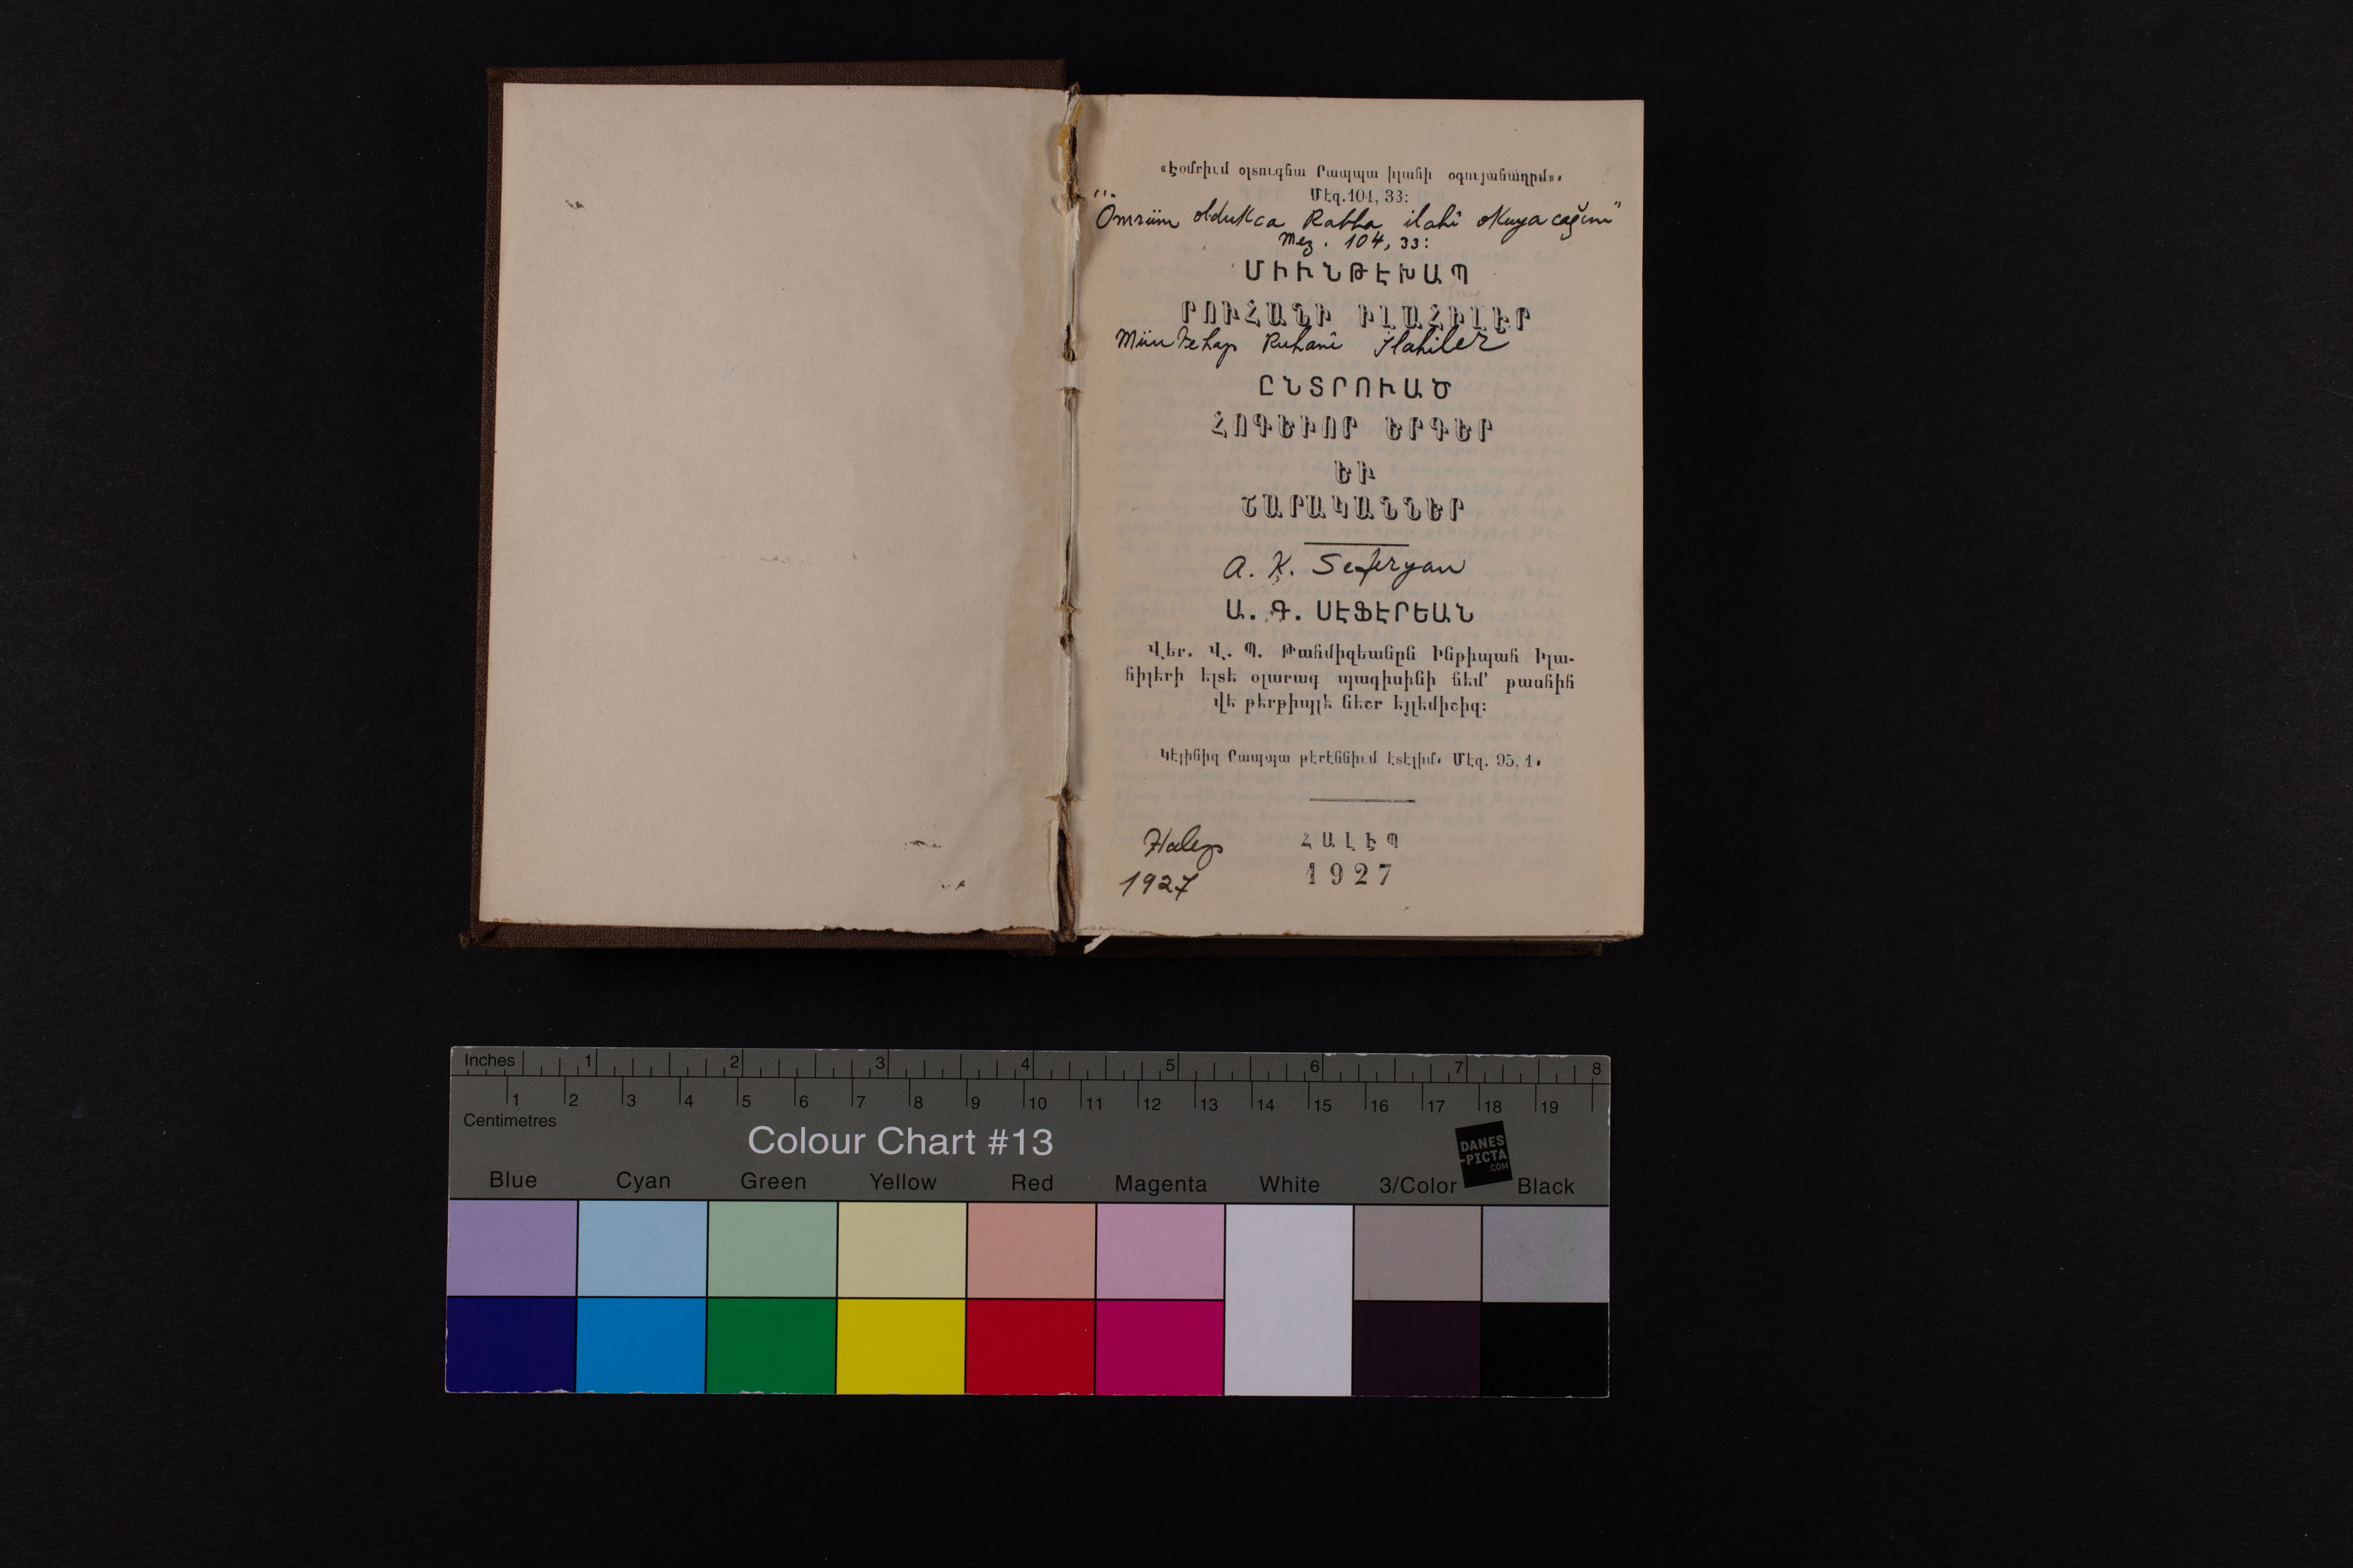 «Էօմրիւմ օլտուգճա Րապպա իլահի օգույաճաղըմ».
Մէզ.104, 33:
"Ömrüm oldukca Rabba ilahî okuyacağım"
Mez. 104, 33:
ՄԻՒՆԹԷԽԱՊ
ՐՈՒՀԱՆԻ ԻԼԱՀԻԼԷՐ
Müntehap Ruhanî İlahiler
ԸՆՏՐՈՒԱԾ
ՀՈԳԵՒՈՐ ԵՐԳԵՐ
ԵՒ
ՇԱՐԱԿԱՆՆԵՐ
A. K. Seferyan
Ա. Գ. ՍԷՖԷՐԵԱՆ
Վեր. Վ. Պ. Թահմիզեանըն Ինթիպահ Իլա-
հիլերի ելտե օլարագ պագիսինի հեմ թասհիհ
վե թերթիպլե նեշր եյլեմիշիզ:
Կէլինիզ Րապպա թէրէննիւմ էտէլիմ. Մէզ. 95, 1.
Halep
ՀԱԼԷՊ
1927
1927
Inches 1 2 3 4 5 6 7 8
1 2 3 4 5 6 7 8 9 10 11 12 13 14 15 16 17 18 19
Centimetres
Colour Chart #13
DANES
-PICTA
.COM
Blue Cyan Green Yellow Red Magenta White 3/Color Black